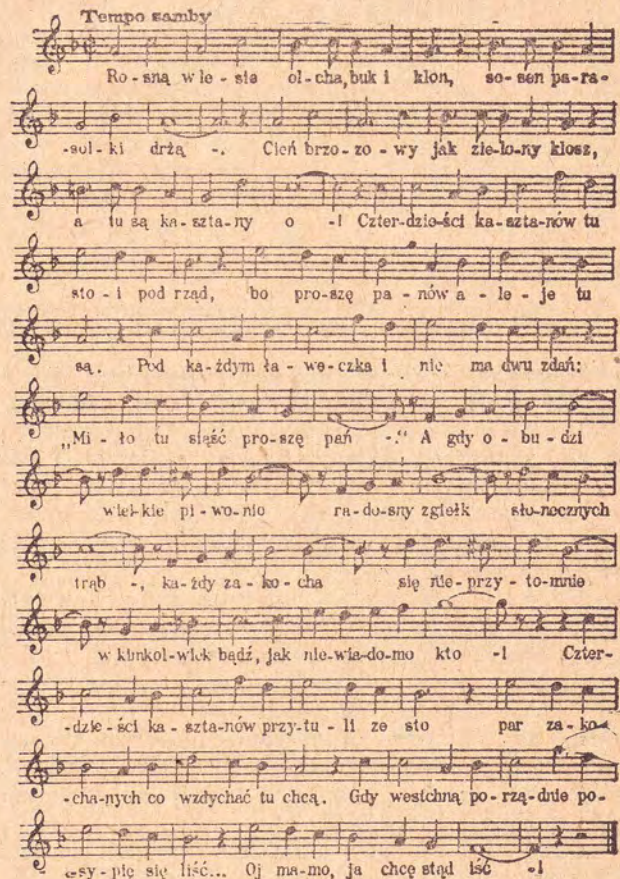 Tempo samby
Ro-sną w le-sie ol-cha, buk i klon, so-sen pa-ra-
-sol-ki drżą -. Cień brzo-zo-wy jak zie-lo-ny klosz,
a tu są ka-szta-ny o -! Czter-dzie-ści ka-szta-nów tu
sto-i pod rząd, bo pro-szę pa-nów a-le-je tu
są. Pod ka-żdym ła-we-czka i nie ma dwu zdań:
„Mi-ło tu siąść pro-szę pań -.“ A gdy o-bu-dzi
wiel-kie pi-wo-nie ra-do-sny zgiełk sło-necznych
trąb -, ka-żdy za-ko-cha się nie-przy-to-mnie
w kimkol-wiek bądź, jak nie-wia-do-mo kto -! Czter-
-dzie-ści ka-szta-nów przy-tu-li ze sto par za-ko-
-cha-nych co wzdychać tu chcą. Gdy westchną po-rzą-dnie po-
-sy-pie się liść... Oj ma-mo, ja chcę stąd iść -!